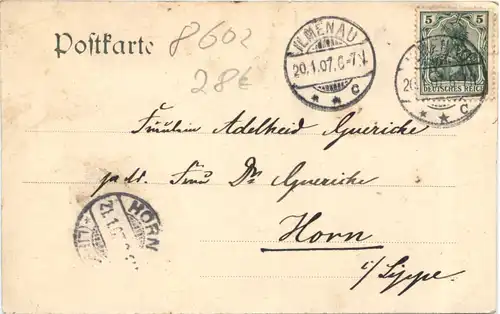 Postkarte
8602
28€
ILMENAU
20.1.07.6-7N
* * c
5 5
DEUTSCHES REICH
Fräulein Adelheid Guericke
p. Adr. Frau Dr Guericke
Horn
i/Lippe.
HORN
21.1.07.
(LIPPE)